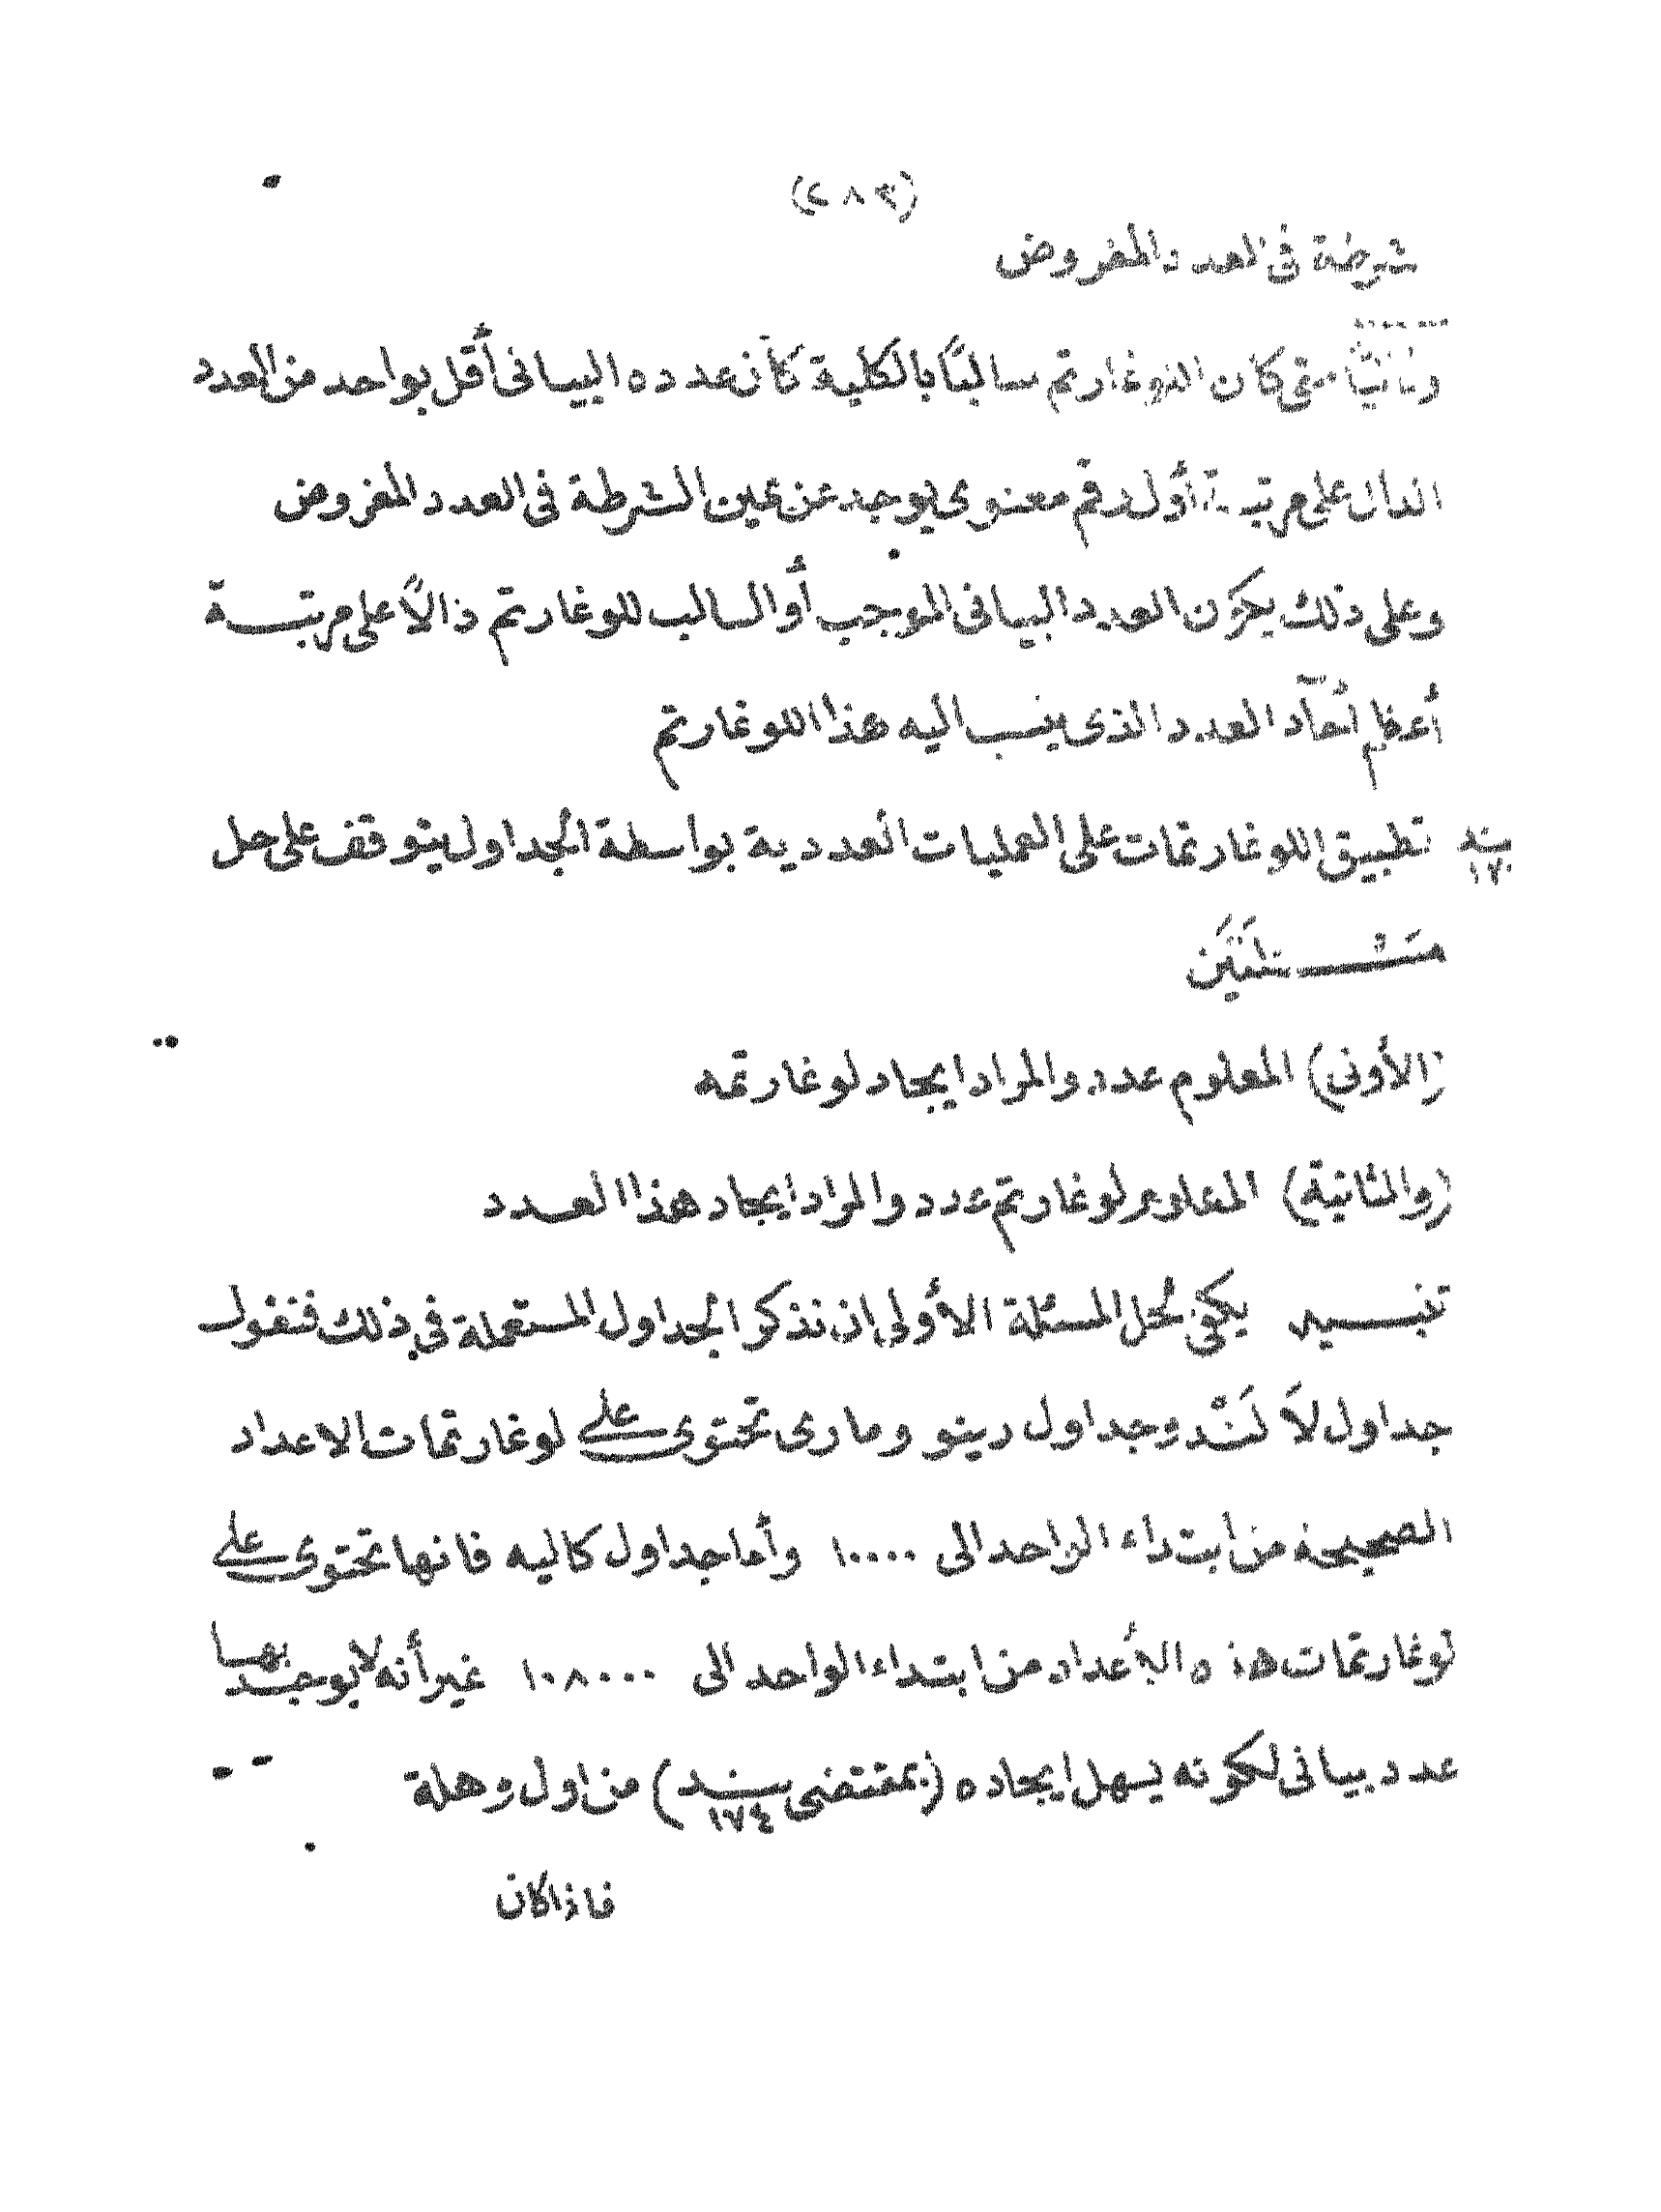 (٢٨٣)
شرطة فى العدد المفروض
وثانيًا متى كان اللوغارتم سالبًا بالكلية كأن عدده البيانى أقل بواحد من العدد
الدال على مرتبة أول رقم معنوى يوجد عن يمين الشرطة فى العدد المفروض
وعلى ذلك يكون العدد البيانى الموجب أو السالب للوغارتم دالًا على مرتبة
أعظم آحاد العدد الذى ينسب اليه هذا اللوغارتم
بند ١٧٠ تطبيق اللوغارتمات على العمليات العددية بواسطة الجداول يتوقف على حل
مسئلتين
(الأولى) المعلوم عدد والمراد ايجاد لوغارتمه
(والثانية) المعلوم لوغارتم عدد والمراد ايجاد هذا العدد
تنبيه يكفى لحل المسئلة الأولى ان نذكر الجداول المستعملة فى ذلك فنقول
جداول لَالَنْد وجداول رينو ومارى تحتوى على لوغارتمات الاعداد
الصحيحة من ابتداء الواحد الى ١٠٠٠٠ وأما جداول كاليه فانها تحتوى على
لوغارتمات هذه الأعداد من ابتداء الواحد الى ١٠٨٠٠٠ غير أنه لا يوجد بها
عدد بيانى لكونه يسهل ايجاده (بمقتضى بند ١٧٤) من اول وهلة
فاذا كان